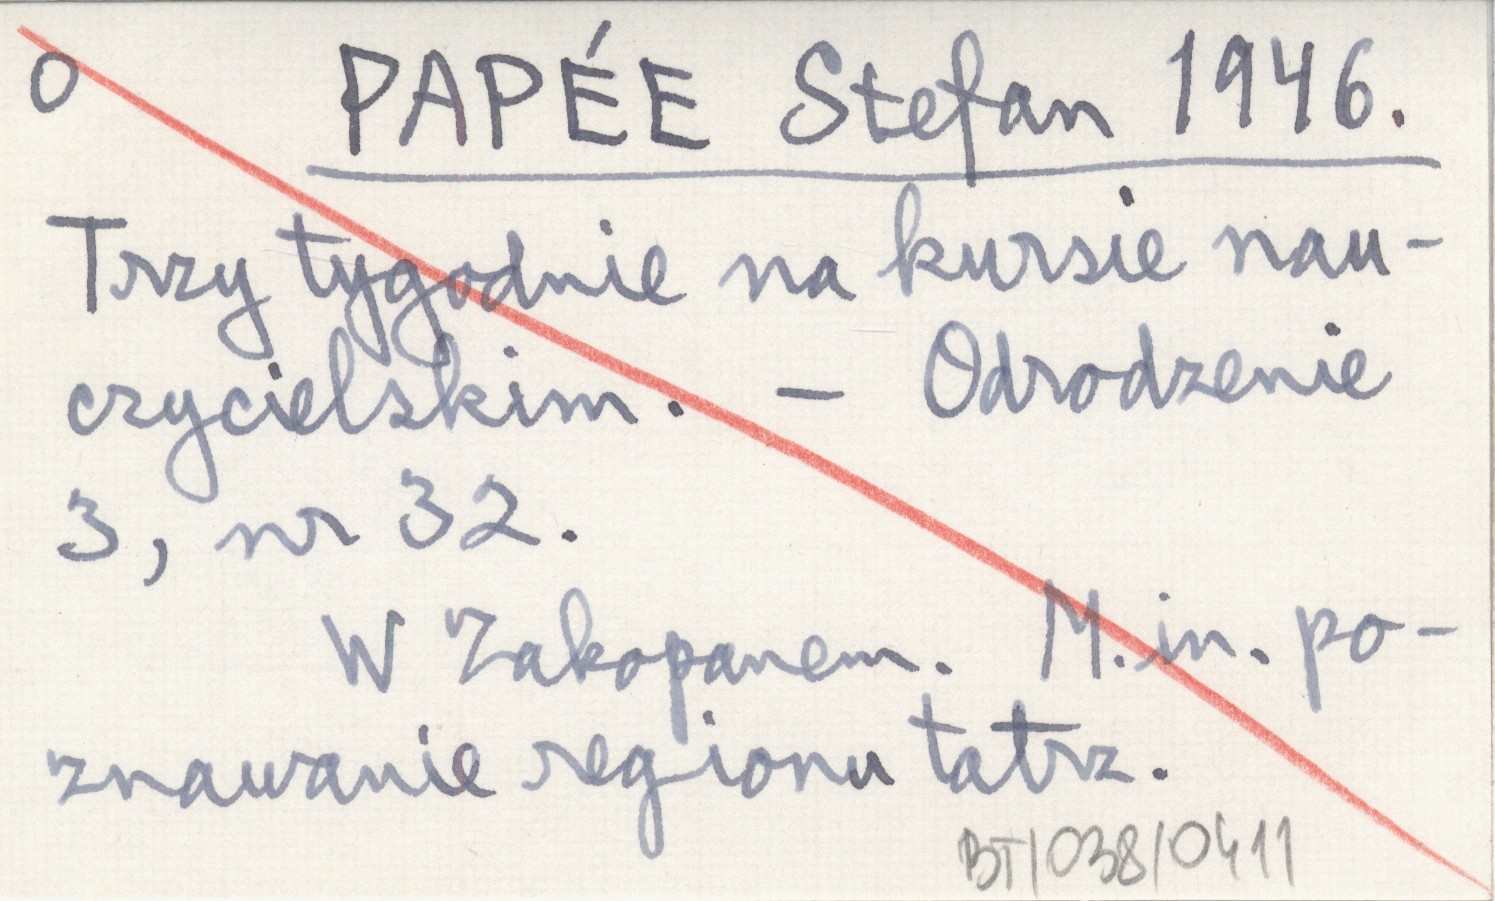 O PAPÉE Stefan 1946.
Trzy tygodnie na kursie nau-
czycielskim. – Odrodzenie
3, nr 32.
W Zakopanem. M. in. po-
znawanie regionu tatrz.
BT/038/0411